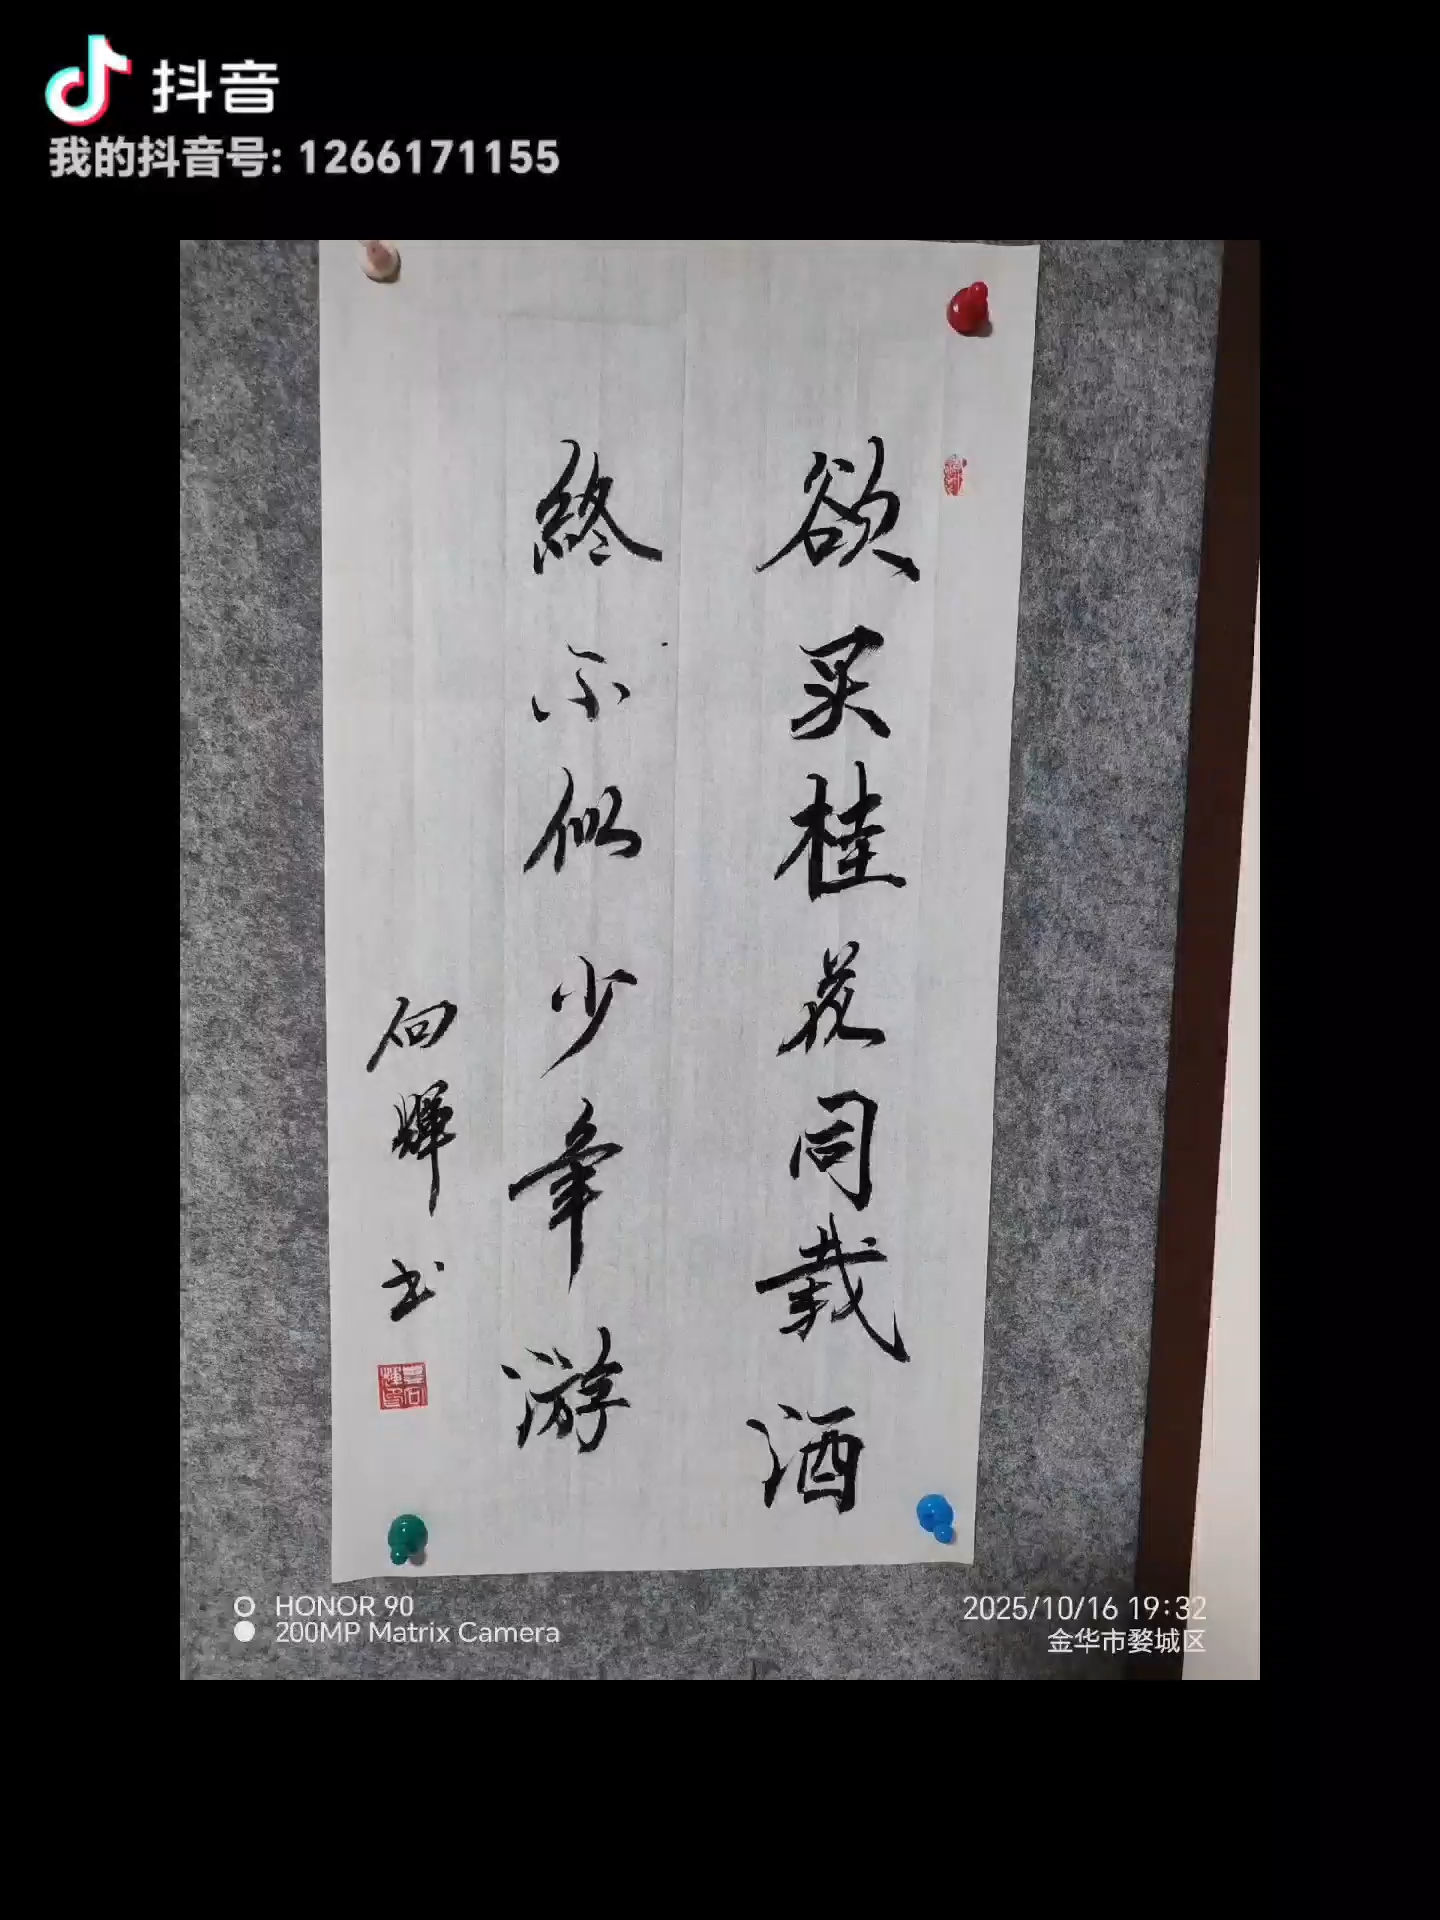 抖音
我的抖音号: 1266171155
欲买桂花同载酒
終不似少年游
向輝书
HONOR 90
200MP Matrix Camera
2025/10/16 19:32
金华市婺城区